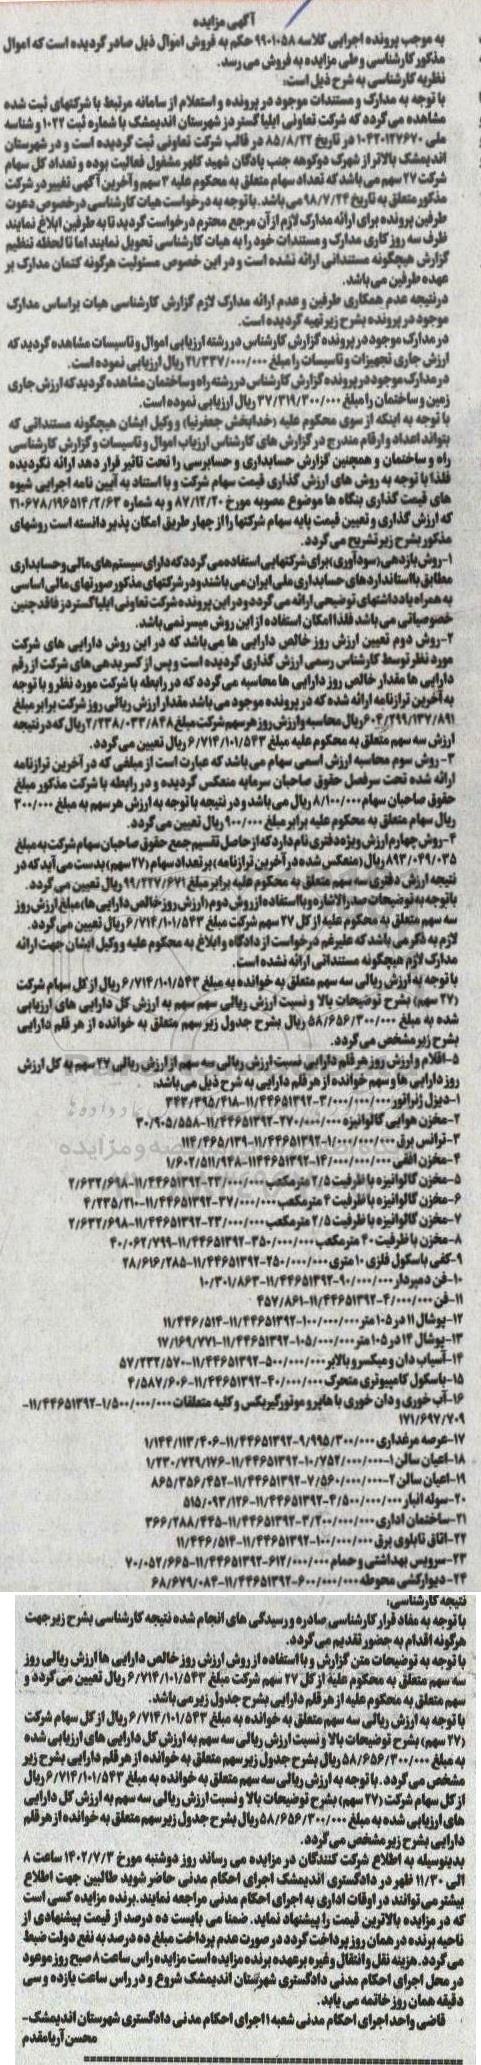 آگهی مزایده
به موجب پرونده اجرایی کلاسه ۹۹۰۱۰۵۸ حکم به فروش اموال ذیل صادر گردیده است که اموال
مذکور کارشناسی و طی مزایده به فروش می رسد.
نظریه کارشناسی به شرح ذیل است:
با توجه به مدارک و مستندات موجود در پرونده و استعلام از سامانه مرتبط با شرکتهای ثبت شده
مشاهده می گردد که شرکت تعاونی ایلیا گستر دز شهرستان اندیمشک با شماره ثبت ۱۰۲۲ و شناسه
ملی ۱۰۴۲۰۱۲۷۶۷۰ در تاریخ ۸۵/۸/۲۲ در قالب شرکت تعاونی ثبت گردیده است و در شهرستان
اندیمشک بالاتر از شهرک دوکوهه جنب پادگان شهید کلهر مشغول فعالیت بوده و تعداد کل سهام
شرکت ۲۷ سهم می باشد که تعداد سهام متعلق به محکوم علیه ۳ سهم و آخرین آگهی تغییر در شرکت
مذکور متعلق به تاریخ ۹۸/۷/۲۴ می باشد. با توجه به درخواست هیات کارشناسی در خصوص دعوت
طرفین پرونده برای ارائه مدارک لازم از آن مرجع محترم درخواست گردید تا به طرفین ابلاغ نمایند
ظرف سه روز کاری مدارک و مستندات خود را به هیات کارشناسی تحویل نمایند اما تا لحظه تنظیم
گزارش هیچگونه مستنداتی ارائه نشده است و در این خصوص مسئولیت هرگونه کتمان مدارک بر
عهده طرفین می باشد.
درنتیجه عدم همکاری طرفین و عدم ارائه مدارک لازم گزارش کارشناسی هیات براساس مدارک
موجود در پرونده بشرح زیر تهیه گردیده است.
در مدارک موجود در پرونده گزارش کارشناس در رشته ارزیابی اموال و تاسیسات مشاهده گردید که
ارزش جاری تجهیزات و تاسیسات را مبلغ ۲۱/۳۳۷/۰۰۰/۰۰۰ ریال ارزیابی نموده است.
در مدارک موجود در پرونده گزارش کارشناس در رشته راه و ساختمان مشاهده گردید که ارزش جاری
زمین و ساختمان را مبلغ ۳۷/۳۱۹/۳۰۰/۰۰۰ ریال ارزیابی نموده است.
با توجه به اینکه از سوی محکوم علیه (خدابخش جعفرنیا) و وکیل ایشان هیچگونه مستنداتی که
بتواند اعداد و ارقام مندرج در گزارش های کارشناس ارزیاب اموال و تاسیسات و گزارش کارشناسی
راه و ساختمان و همچنین گزارش حسابداری و حسابرسی را تحت تاثیر قرار دهد ارائه نگردیده
فلذا با توجه به روش های ارزش گذاری قیمت سهام شرکت و با استناد به آیین نامه اجرایی شیوه
های قیمت گذاری بنگاه ها موضوع مصوبه مورخ ۸۷/۱۲/۲۰ و به شماره ۲۱۰۶۷۸/۱۹۶۵۱۴/۲/۶۳
که ارزش گذاری و تعیین قیمت پایه سهام شرکتها را از چهار طریق امکان پذیر دانسته است روشهای
مذکور بشرح زیر تشریح می گردد.
۱-روش بازدهی (سودآوری) برای شرکتهایی استفاده می گردد که دارای سیستم های مالی و حسابداری
مطابق با استانداردهای حسابداری ملی ایران می باشند و در شرکتهای مذکور صورتهای مالی اساسی
به همراه یادداشتهای توضیحی ارائه می گردد و در این پرونده شرکت تعاونی ایلیا گستر دز فاقد چنین
خصوصیاتی می باشد فلذا امکان استفاده از این روش میسر نمی باشد.
۲-روش دوم تعیین ارزش روز خالص دارایی ها می باشد که در این روش دارایی های شرکت
مورد نظر توسط کارشناس رسمی ارزش گذاری گردیده است و پس از کسر بدهی های شرکت از رقم
دارایی ها مقدار خالص روز دارایی ها محاسبه می گردد که در رابطه با شرکت مورد نظر و با توجه
به آخرین ترازنامه ارائه شده که در پرونده موجود می باشد مقدار ارزش ریالی روز شرکت برابر مبلغ
ریال محاسبه و ارزش روز هر سهم شرکت مبلغ ۲/۲۳۸/۰۳۳/۸۴۸ ریال که در نتیجه
ارزش سه سهم متعلق به محکوم علیه مبلغ ۶/۷۱۴/۱۰۱/۵۴۳ ریال تعیین می گردد.
۳- روش سوم محاسبه ارزش اسمی سهام می باشد که عبارت است از مبلغی که در آخرین ترازنامه
ارائه شده تحت سرفصل حقوق صاحبان سرمایه منعکس گردیده و در رابطه با شرکت مذکور مبلغ
حقوق صاحبان سهام ۸/۱۰۰/۰۰۰ ریال می باشد و در نتیجه با توجه به ارزش هر سهم به مبلغ ۳۰۰/۰۰۰
ریال سهام متعلق به محکوم علیه برابر مبلغ ۹۰۰/۰۰۰ ریال تعیین می گردد.
۴-روش چهارم ارزش ویژه دفتری نام دارد که از حاصل تقسیم جمع حقوق صاحبان سهام شرکت به مبلغ
۸۹۳/۰۴۹/۰۳۵ ریال (منعکس شده در آخرین ترازنامه) بر تعداد سهام (۲۷ سهم) بدست می آید که در
نتیجه ارزش دفتری سه سهم متعلق به محکوم علیه برابر مبلغ ۹۹/۲۲۷/۶۷۱ ریال تعیین می گردد.
با توجه به توضیحات صدرالاشاره و با استفاده از روش دوم (ارزش روز خالص دارایی ها) مبلغ ارزش روز
سه سهم متعلق به محکوم علیه از کل ۲۷ سهم شرکت مبلغ ۶/۷۱۴/۱۰۱/۵۴۳ ریال تعیین می گردد.
لازم به ذکر می باشد که علیرغم درخواست از دادگاه و ابلاغ به محکوم علیه و وکیل ایشان جهت ارائه
مدارک لازم هیچگونه مستنداتی ارائه نشده است.
با توجه به ارزش ریالی سه سهم متعلق به خوانده به مبلغ ۶/۷۱۴/۱۰۱/۵۴۳ ریال از کل سهام شرکت
(۲۷ سهم) بشرح توضیحات بالا و نسبت ارزش ریالی سهم سهم به ارزش کل دارایی های ارزیابی
شده به مبلغ ۵۸/۶۵۶/۳۰۰/۰۰۰ ریال بشرح جدول زیر سهم متعلق به خوانده از هر قلم دارایی
بشرح زیر مشخص می گردد.
۵-اقلام و ارزش روز هر قلم دارایی نسبت ارزش ریالی سه سهم از ارزش ریالی ۲۷ سهم به کل ارزش
روز دارایی ها و سهم خوانده از هر قلم دارایی به شرح ذیل می باشد:
۱-دیزل ژنراتور۳/۰۰۰/۰۰۰/۰۰۰-۱۱/۴۴۶۵۱۳۹۲-۳۴۳/۳۹۵/۴۱۸
۲-مخزن هوایی گالوانیزه ۲۷۰/۰۰۰/۰۰۰-۱۱/۴۴۶۵۱۳۹۲-۳۰/۹۰۵/۵۵۸
۳-ترانس برق ۱/۰۰۰/۰۰۰/۰۰۰-۱۱/۴۴۶۵۱۳۹۲-۱۱۴/۴۶۵/۱۳۹
۴-مخزن افقی ۱۴/۰۰۰/۰۰۰-۱۱۴۴۶۵۱۳۹۲-۱/۶۰۲/۵۱۱/۹۴۸
۵-مخزن گالوانیزه با ظرفیت ۲/۵ مترمکعب ۲۳/۰۰۰/۰۰۰-۱۱/۴۴۶۵۱۳۹۲-۲/۶۳۲/۶۹۸
۶-مخزن گالوانیزه با ظرفیت ۴ مترمکعب ۳۷/۰۰۰/۰۰۰-۱۱/۴۴۶۵۱۳۹۲-۴/۲۳۵/۲۱۰
۷-مخزن گالوانیزه با ظرفیت ۲/۵ مترمکعب ۲۳/۰۰۰/۰۰۰-۱۱/۴۴۶۵۱۳۹۲-۲/۶۳۲/۶۹۸
۸-مخزن با ظرفیت ۴۰ مترمکعب ۳۵۰/۰۰۰/۰۰۰-۱۱/۴۴۶۵۱۳۹۲-۴۰/۰۶۲/۷۹۹
۹-کفی باسکول فلزی ۱۰ متری ۲۵۰/۰۰۰/۰۰۰-۱۱/۴۴۶۵۱۳۹۲-۲۸/۶۱۶/۲۸۵
۱۰-فن دمپردار ۹۰/۰۰۰/۰۰۰-۱۱/۴۴۶۵۱۳۹۲-۱۰/۳۰۱/۸۶۳
۱۱-فن ۴/۰۰۰/۰۰۰-۱۱/۴۴۶۵۱۳۹۲-۴۵۷/۸۶۱
۱۲-پوشال ۱۱ در ۱۰۵ متر ۱۰۰/۰۰۰/۰۰۰-۱۱/۴۴۶۵۱۳۹۲-۱۱/۴۴۶/۵۱۴
۱۳-پوشال ۱۴ در ۱۰۵ متر ۱۰۵/۰۰۰/۰۰۰-۱۱/۴۴۶۵۱۳۹۲-۱۷/۱۶۹/۷۷۱
۱۴-آسیاب دان و میکسر و بالابر ۵۰۰/۰۰۰/۰۰۰-۱۱/۴۴۶۵۱۳۹۲-۵۷/۲۳۲/۵۷۰
۱۵-باسکول کامپیوتری متحرک ۴۰/۰۰۰/۰۰۰-۱۱/۴۴۶۵۱۳۹۲-۴/۵۸۷/۶۰۶
۱۶-آب خوری و دان خوری با هاپر و موتور گیربکس و کلیه متعلقات ۱/۵۰۰/۰۰۰/۰۰۰-۱۱/۴۴۶۵۱۳۹۲-
۱۷۱/۶۹۷/۷۰۹
۱۷-عرصه مرغداری ۹/۹۹۵/۳۰۰/۰۰۰-۱۱/۴۴۶۵۱۳۹۲-۱/۱۴۴/۱۱۳/۴۰۶
۱۸-اعیان سالن ۱-۱۰/۷۵۲/۰۰۰/۰۰۰-۱۱/۴۴۶۵۱۳۹۲-۱/۲۳۰/۷۲۹/۱۷۶
۱۹-اعیان سالن ۲-۷/۵۶۰/۰۰۰/۰۰۰-۱۱/۴۴۶۵۱۳۹۲-۸۶۵/۳۵۶/۴۵۲
۲۰-سوله انبار ۴/۵۰۰/۰۰۰/۰۰۰-۱۱/۴۴۶۵۱۳۹۲-۵۱۵/۰۹۳/۱۲۶
۲۱-ساختمان اداری ۳/۲۰۰/۰۰۰/۰۰۰-۱۱/۴۴۶۵۱۳۹۲-۳۶۶/۲۸۸/۴۴۵
۲۲-اتاق تابلوی برق ۱۰۰/۰۰۰/۰۰۰-۱۱/۴۴۶۵۱۳۹۲-۱۱/۴۴۶/۵۱۴
۲۳-سرویس بهداشتی و حمام ۶۱۲/۰۰۰/۰۰۰-۱۱/۴۴۶۵۱۳۹۲-۷۰/۰۵۲/۶۶۵
۲۴-دیوارکشی محوطه ۶۰۰/۰۰۰/۰۰۰-۱۱/۴۴۶۵۱۳۹۲-۶۸/۶۷۹/۰۸۴
نتیجه کارشناسی:
با توجه به مفاد قرار کارشناسی صادره و رسیدگی های انجام شده نتیجه کارشناسی بشرح زیر جهت
هرگونه اقدام به حضور تقدیم می گردد.
با توجه به توضیحات متن گزارش و با استفاده از روش ارزش روز خالص دارایی ها ارزش ریالی روز
سه سهم متعلق به محکوم علیه از کل ۲۷ سهم شرکت مبلغ ۶/۷۱۴/۱۰۱/۵۴۳ ریال تعیین می گردد و
سهم متعلق به محکوم علیه از هر قلم دارایی بشرح جدول زیر می باشد.
با توجه به ارزش ریالی سه سهم متعلق به خوانده به مبلغ ۶/۷۱۴/۱۰۱/۵۴۳ ریال از کل سهام شرکت
(۲۷ سهم) بشرح توضیحات بالا و نسبت ارزش ریالی سه سهم به ارزش کل دارایی های ارزیابی شده
به مبلغ ۵۸/۶۵۶/۳۰۰/۰۰۰ ریال بشرح جدول زیر سهم متعلق به خوانده از هر قلم دارایی بشرح زیر
مشخص می گردد. با توجه به ارزش ریالی سه سهم متعلق به خوانده به مبلغ ۶/۷۱۴/۱۰۱/۵۴۳ ریال
از کل سهام شرکت (۲۷ سهم) بشرح توضیحات بالا و نسبت ارزش ریالی سه سهم به ارزش کل دارایی
های ارزیابی شده به مبلغ ۵۸/۶۵۶/۳۰۰/۰۰۰ ریال بشرح جدول زیر سهم متعلق به خوانده از هر قلم
دارایی بشرح زیر مشخص می گردد.
بدینوسیله به اطلاع شرکت کنندگان در مزایده می رساند روز دوشنبه مورخ ۱۴۰۲/۷/۳ ساعت ۸
الی ۱۱/۳۰ ظهر در دادگستری اندیمشک اجرای احکام مدنی حاضر شوید طالبین جهت اطلاع
بیشتر می توانند در اوقات اداری به اجرای احکام مدنی مراجعه نمایند. برنده مزایده کسی است
که در مزایده بالاترین قیمت را پیشنهاد نماید. ضمنا می بایست ده درصد از قیمت پیشنهادی از
ناحیه برنده در همان روز پرداخت گردد در صورت عدم پرداخت مبلغ ده درصد به نفع دولت ضبط
می گردد. هزینه نقل و انتقال و غیره بر عهده برنده مزایده است مزایده راس ساعت ۸ صبح روز موعود
در محل اجرای احکام مدنی دادگستری شهرستان اندیمشک شروع و در راس ساعت یازده و سی
دقیقه همان روز خاتمه می یابد.
قاضی واحد اجرای احکام مدنی شعبه ۱ اجرای احکام مدنی دادگستری شهرستان اندیمشک-
محسن آریا مقدم